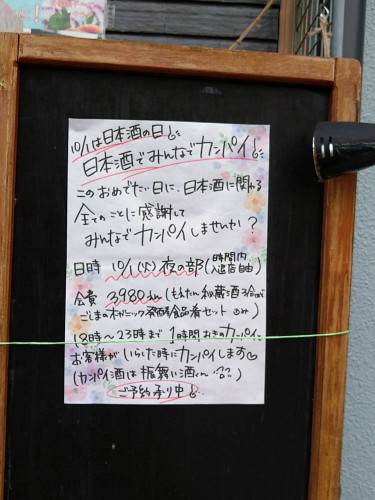 10/1は日本酒の日
日本酒でみんなでカンパイ
このおめでたい日に、日本酒に関わる
全てのことに感謝して
みんなでカンパイしませんか?
日時 10/1(火)夜の部(時間内入退店自由)
会費 3980
秘蔵酒3合
ごまの木 セット
18時〜23時まで 1時間おきのカンパイに
お客様がいらした時にカンパイします♡
(カンパイ酒は振舞い酒
ご予約承り中